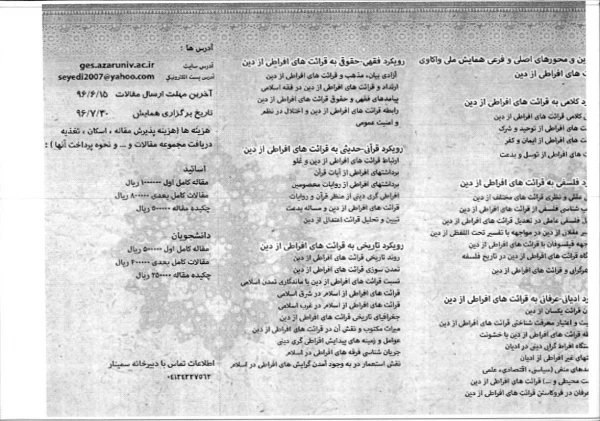 ین و محورهای اصلی و فرعی همایش ملی واکاوی
های افراطی از دین
رد کلامی به قرائت های افراطی از دین
کلامی قرائت های افراطی از دین
های افراطی از توحید و شرک
های افراطی از ایمان و کفر
های افراطی از توسل و بدعت
رد فلسفی به قرائت های افراطی از دین
عقلی و نظری قرائت های مختلف از دین
شناسی فلسفی از قرائت های افراطی از دین
فلسفی عاملی در تعدیل قرائت های افراطی از دین
در مواجهه با تفسیر تحت اللفظی از دین
فیلسوفان با قرائت های افراطی از دین
قرائت های افراطی از دین در تاریخ فلسفه
و قرائت های افراطی از دین
رد ادیان-عرفانی به قرائت های افراطی از دین
قرائت یکسان از دین
و اعتبار معرفت شناختی قرائت های افراطی از دین
قرائت های افراطی از دین با خشونت
افراط گرای دینی در ادیان
های غیر افراطی از ادیان
های منفی (سیاسی، اقتصادی، علمی
محیطی و ...) قرائت های افراطی از دین
عرفان در فروکاستن قرائت های افراطی از دین
رویکرد فقهی-حقوقی به قرائت های افراطی از دین
آزادی بیان، مذهب و قرائت های افراطی از دین
ارتداد و قرائت های افراطی از دین در فقه اسلامی
پیامدهای فقهی و حقوق قرائت های افراطی از دین
رابطه قرائت های افراطی از دین و اختلال در نظم
و امنیت عمومی
رویکرد قرآنی-حدیثی به قرائت های افراطی از دین
ارتباط قرائت های افراطی از دین و غلو
برداشتهای افراطی از آیات قرآن
برداشتهای افراطی از روایات معصومین
افراطی گری دینی از منظر قرآن و روایات
قرائت های افراطی از دین و مساله بدعت
تبیین و تحلیل قرائت اعتدال از دین
رویکرد تاریخی به قرائت های افراطی از دین
روند تاریخی قرائت های افراطی از دین
تمدن سوزی قرائت های افراطی از دین
نسبت قرائت های افراطی از دین با ماندگاری تمدن اسلامی
قرائت های افراطی از اسلام در شرق اسلامی
قرائت های افراطی از اسلام در غرب اسلامی
جغرافیای تاریخی قرائت های افراطی از دین
میراث مکتوب و نقش آن در قرائت های افراطی از دین
عوامل و زمینه های پیدایش افراطی گری دینی
جریان شناسی فرقه های افراطی در اسلام
نقش استعمار در به وجود آمدن گرایش های افراطی در اسلام
آدرس ها :
آدرس سایت ges.azaruniv.ac.ir
آدرس پست الکترونیکی seyedi2007@yahoo.com
آخرین مهلت ارسال مقالات ۹۶/۶/۱۵
تاریخ برگزاری همایش ۹۶/۷/۳۰
هزینه ها (هزینه پذیرش مقاله ، اسکان ، تغذیه
دریافت مجموعه مقالات و ... و نحوه پرداخت آنها) :
اساتید
مقاله کامل اول ۱۰۰۰۰۰۰ ریال
مقالات کامل بعدی ۸۰۰۰۰۰ ریال
چکیده مقاله ۵۰۰۰۰۰ ریال
دانشجویان
مقاله کامل اول ۵۰۰۰۰۰ ریال
مقالات کامل بعدی ۴۰۰۰۰۰ ریال
چکیده مقاله ۲۵۰۰۰۰ ریال
اطلاعات تماس با دبیرخانه سمینار
۰۴۱۳۴۳۲۷۵۶۲